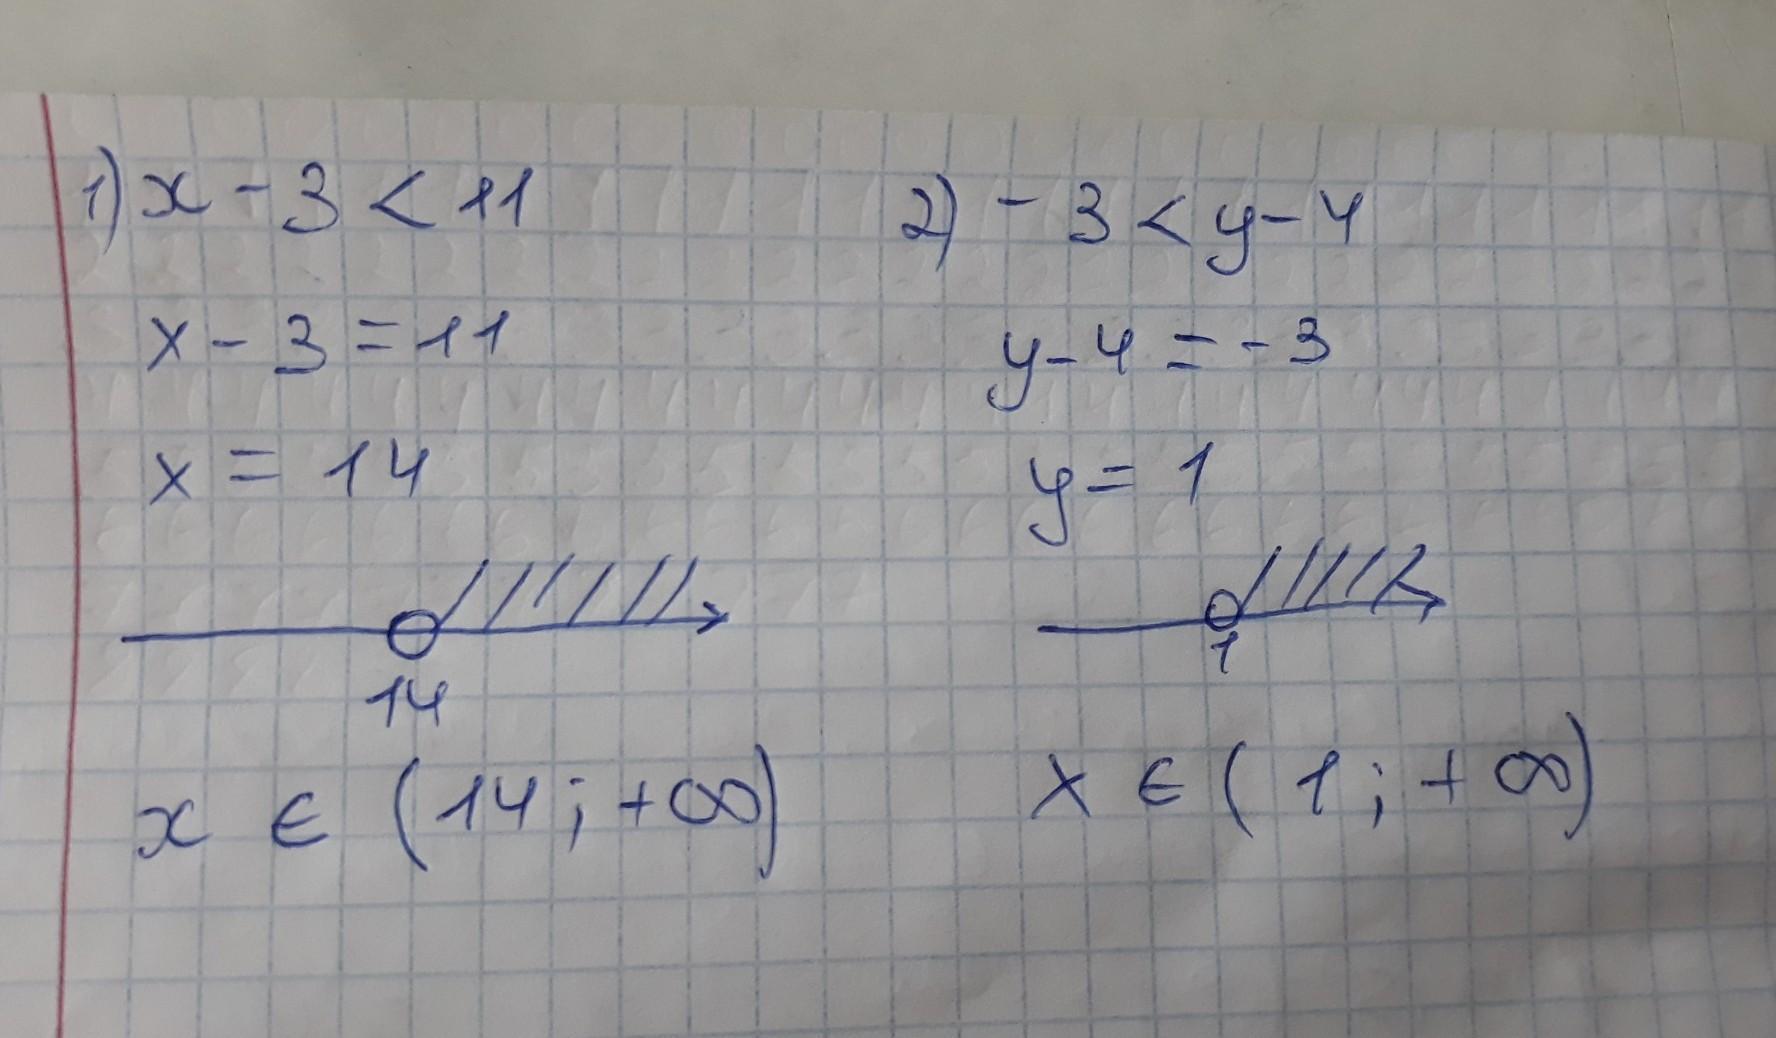 1) x - 3 < 11
x - 3 = 11
x = 14
14
x ∈ (14; +∞)
2) - 3 < y - 4
y - 4 = - 3
y = 1
1
x ∈ (1; + ∞)